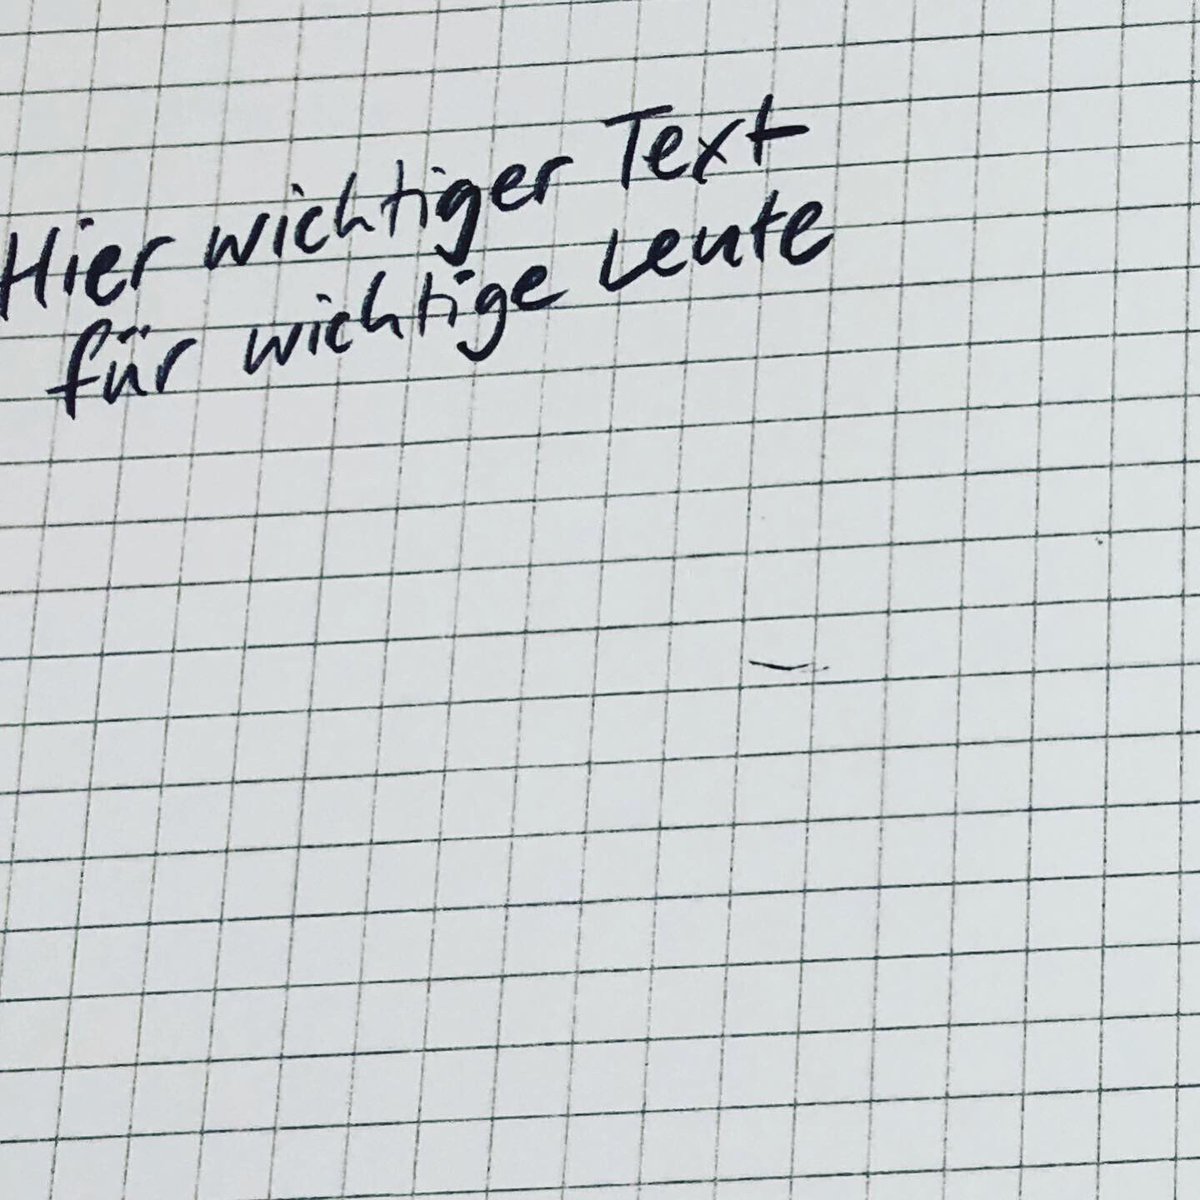 Hier wichtiger Text
für wichtige Leute